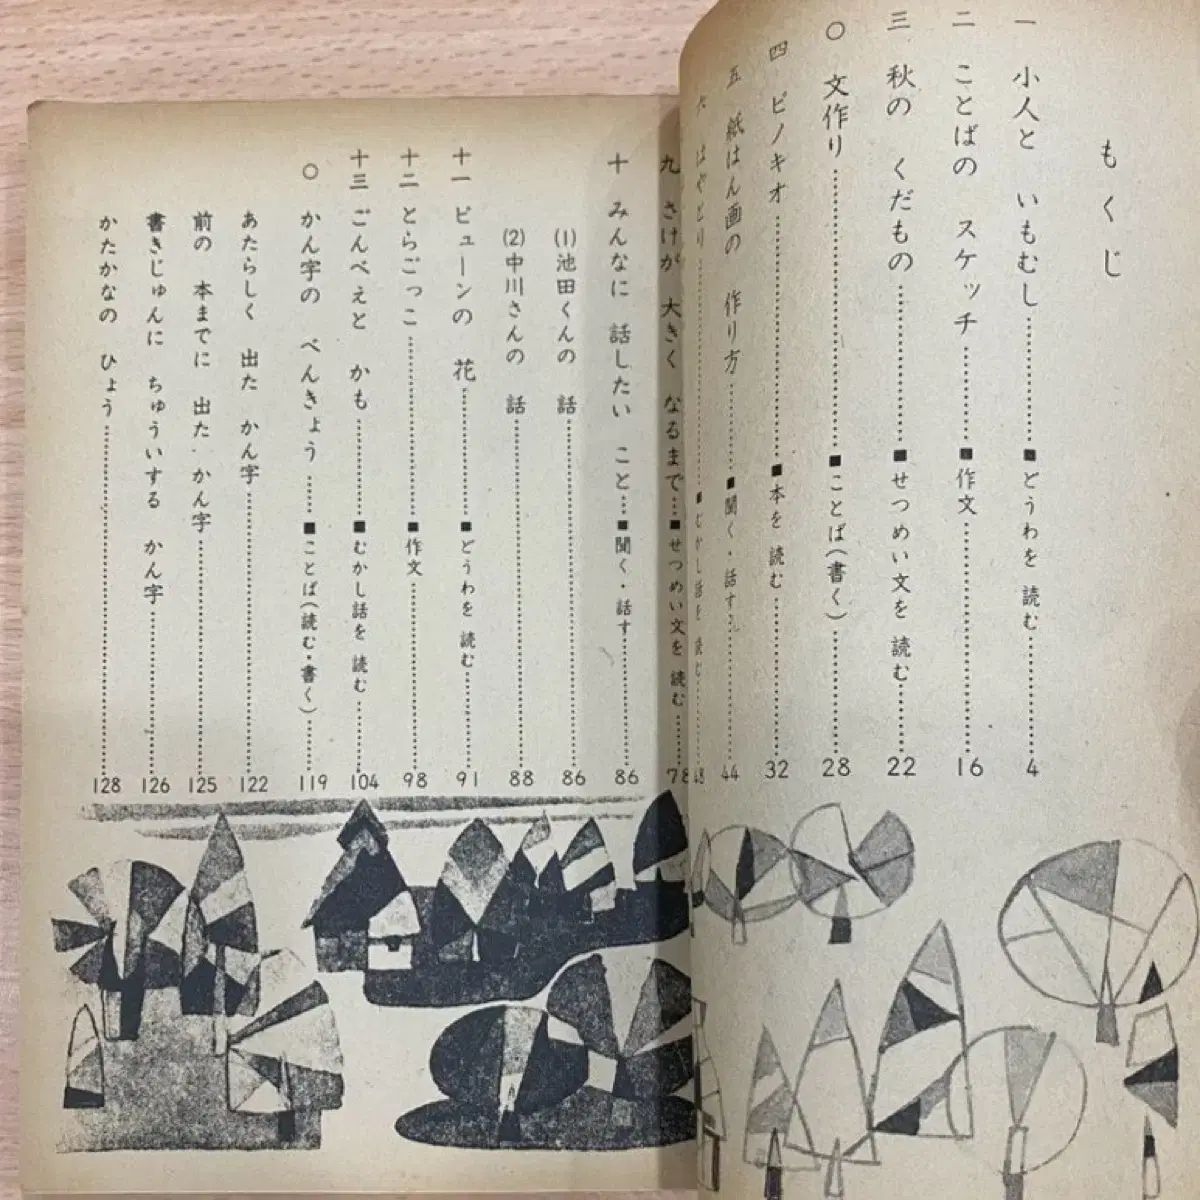 もくじ
一 小人と いもむし……■どうわを 読む……4
二 ことばの スケッチ……■作文……16
三 秋の くだもの……■せつめい文を 読む……22
○ 文作り……■ことば(書く)……28
四 ピノキオ……■本を 読む……32
五 紙はん画の 作り方……■聞く・話す……44
六 はやとり……■むかし話を 読む……48
九 さけが 大きく なるまで…■せつめい文を 読む……78
十 みんなに 話したい こと…■聞く・話す……86
(1)池田くんの 話……86
(2)中川さんの 話……88
十一 ピューンの 花……■どうわを 読む……91
十二 とらごっこ……■作文……98
十三 ごんべえと かも……■むかし話を 読む……104
○ かん字の べんきょう……■ことば(読む・書く)……119
あたらしく 出た かん字……122
前の 本までに 出た かん字……125
書きじゅんに ちゅういする かん字……126
かたかなの ひょう……128